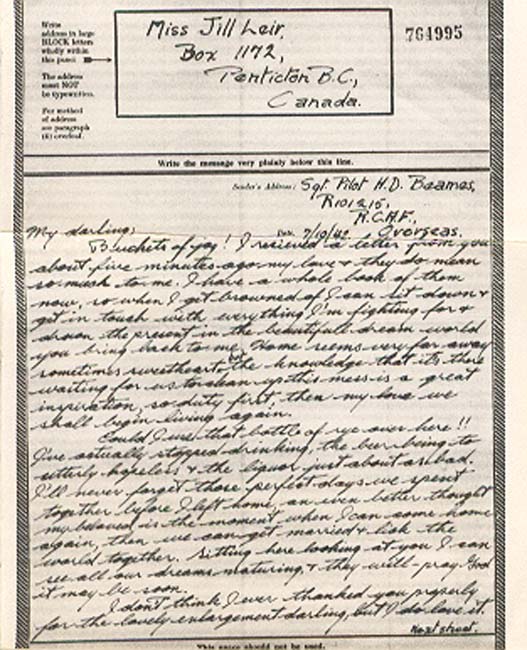 Write
address in large
BLOCK letters
wholly within
this panel
The address
must NOT
be typewritten.
For method
of address
see paragraph
(6) overleaf.
Miss Jill Leir,
Box 1172,
Penticton B.C.,
Canada.
764995
Write the message very plainly below this line.
Sender's Address: Sgt. Pilot H.D. Beames,
R101215,
R.C.A.F.,
Date 7/10/42 Overseas.
My darling,
Buckets of joy! I recieved a letter from you
about five minutes ago my love & they do mean
so much to me. I have a whole book of them
now, so when I get browned of I can sit down &
get in touch with everything I'm fighting for &
drown the present in the beautifull dream world
you bring back to me. Home seems very far away
sometimes sweetheart, but the knowledge that it's there
waiting for us to clean up this mess is a great
inspiration, so duty first, then my love we
shall begin living again.
Could I use that bottle of rye over here!!
I've actually stopped drinking, the beer being to
utterly hopeless & the liquor just about as bad.
I'll never forget those perfect days we spent
together before I left home, an even better thought
my beloved is the moment when I can come home
again, then we can get married & lick the
world together. Sitting here looking at you I can
see all our dreams maturing, & they will - pray God
it may be soon.
I don't think I ever thanked you properly
for the lovely enlargement darling, but I do love it
Next sheet.
This space should not be used.